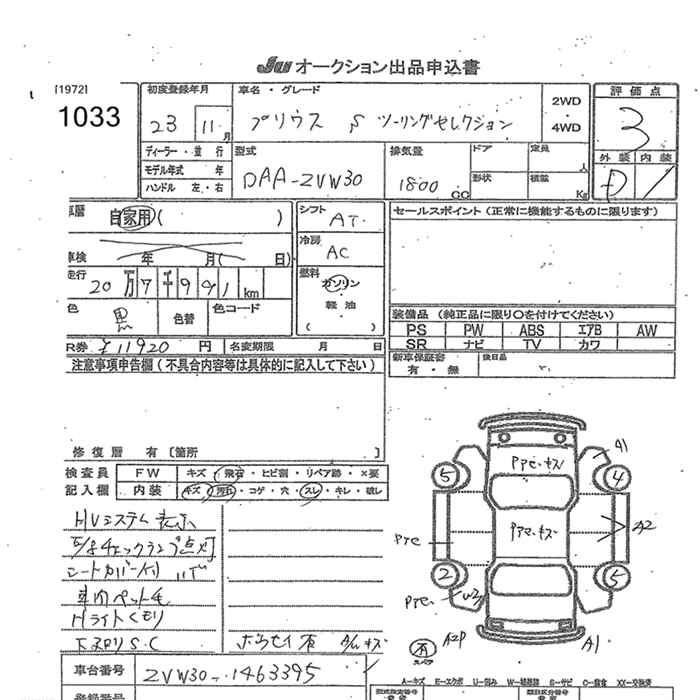 JU オークション出品申込書
[1972]
1033
初度登録年月
23 11 月
車名・グレード
プリウス S ツーリングセレクション
2WD
4WD
評価点
3
外装 内装
D
ディーラー・並行
モデル年式 年
ハンドル 左・右
型式
DAA-ZVW30
排気量
1800 CC
ドア
定員 人
形状
積載 Kg
車歴
自家用( )
車検 年 月( 日)
走行
20万7千941km
色
黒
色替
色コード
シフト
AT
冷房
AC
燃料
ガソリン
軽油
( )
セールスポイント(正常に機能するものに限ります)
装備品(純正品に限り○を付けてください)
PS PW ABS エアB AW
SR ナビ TV カワ
新車保証書
有・無
後日品
R券 ¥11920 円
名変期限 月 日
注意事項申告欄(不具合内容等は具体的に記入して下さい)
修復歴 有〔箇所 〕
検査員
記入欄
FW キズ・飛石・ヒビ割・リペア跡・×要
内装 キズ・汚れ・コゲ・穴・スレ・キレ・破レ
HVシステム表示
チェックランプ点灯
シートカバー付
車内ペット毛
Hライトくもり
下廻りS.C
ホウセイ有
キズ
車台番号
ZVW30-1463395
登録番号
A1
5
4
アアセ・キズ
アアセ・キズ
A2
2
5
有
スペア
A2P
A1
A-キズ E-エクボ U-凹み W-補修跡 S-サビ C-腐食 XX-交換済
型式指定番号
類別区分番号